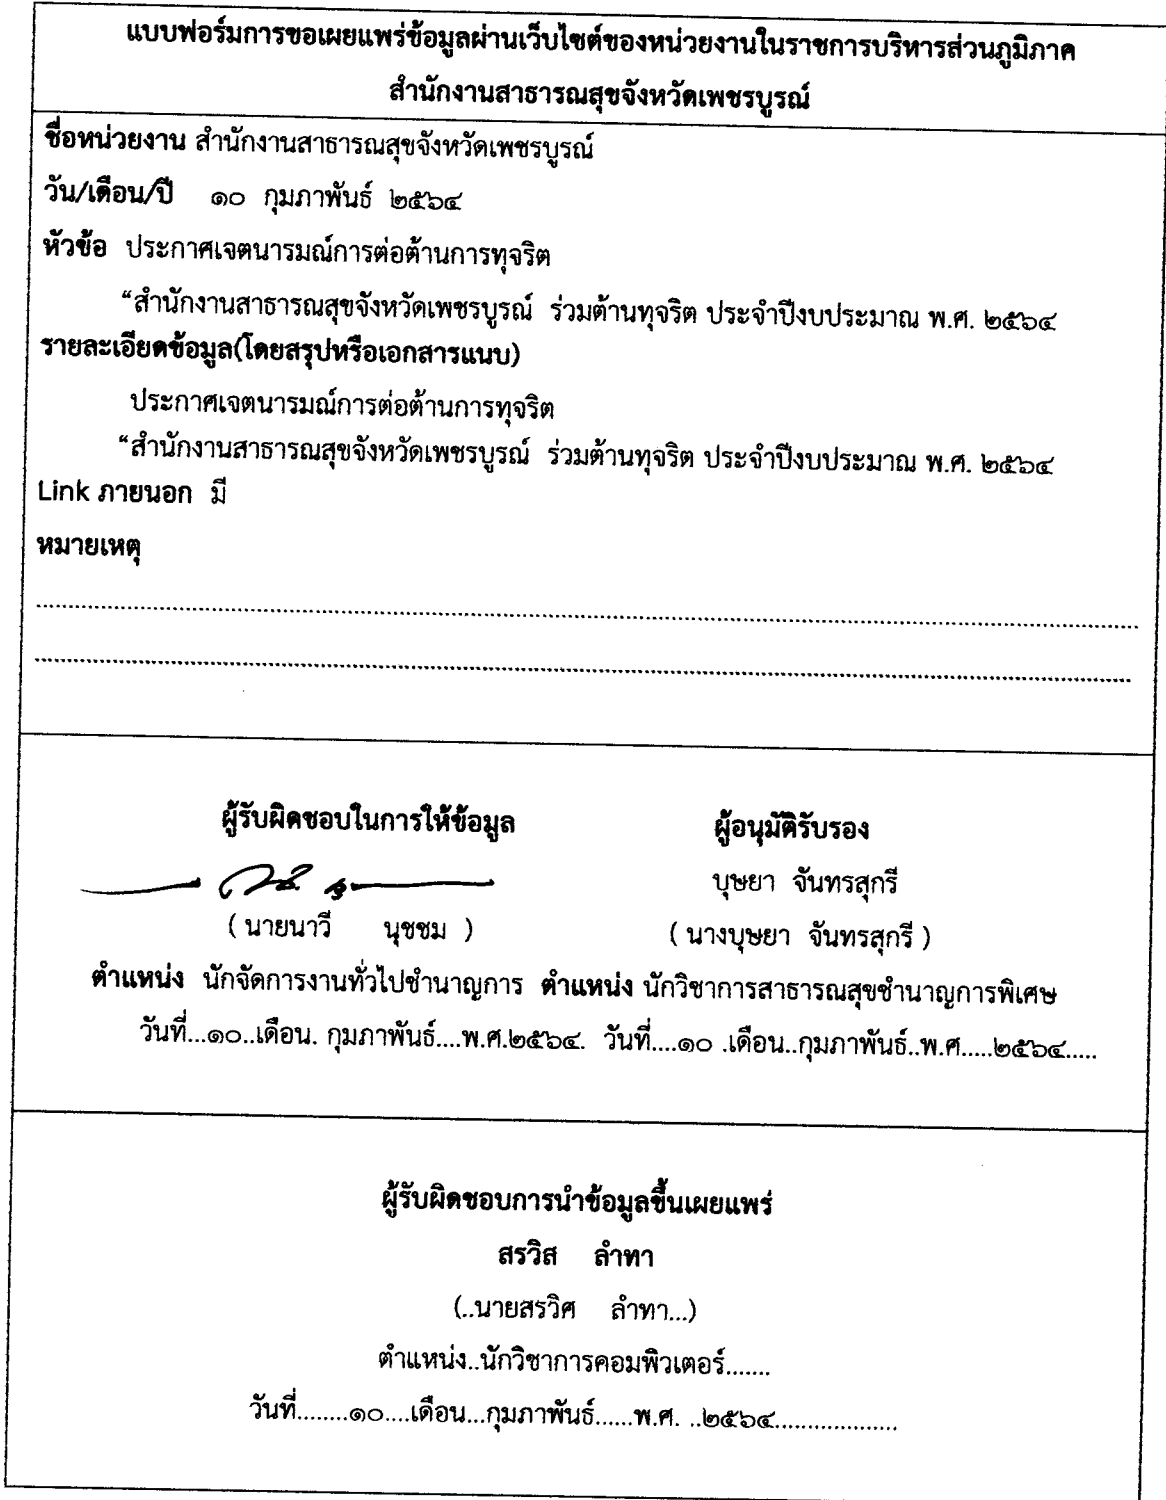 แบบฟอร์มการขอเผยแพร่ข้อมูลผ่านเว็บไซต์ของหน่วยงานในราชการบริหารส่วนภูมิภาค
สำนักงานสาธารณสุขจังหวัดเพชรบูรณ์
ชื่อหน่วยงาน สำนักงานสาธารณสุขจังหวัดเพชรบูรณ์
วัน/เดือน/ปี ๑๐ กุมภาพันธ์ ๒๕๖๔
หัวข้อ ประกาศเจตนารมณ์การต่อต้านการทุจริต
“สำนักงานสาธารณสุขจังหวัดเพชรบูรณ์ ร่วมต้านทุจริต ประจำปีงบประมาณ พ.ศ. ๒๕๖๔
รายละเอียดข้อมูล(โดยสรุปหรือเอกสารแนบ)
ประกาศเจตนารมณ์การต่อต้านการทุจริต
“สำนักงานสาธารณสุขจังหวัดเพชรบูรณ์ ร่วมต้านทุจริต ประจำปีงบประมาณ พ.ศ. ๒๕๖๔
Link ภายนอก มี
หมายเหตุ
ผู้รับผิดชอบในการให้ข้อมูล ผู้อนุมัติรับรอง
บุษยา จันทรสุกรี
( นายนาวี นุชชม ) ( นางบุษยา จันทรสุกรี )
ตำแหน่ง นักจัดการงานทั่วไปชำนาญการ ตำแหน่ง นักวิชาการสาธารณสุขชำนาญการพิเศษ
วันที่...๑๐..เดือน. กุมภาพันธ์....พ.ศ.๒๕๖๔. วันที่....๑๐ .เดือน..กุมภาพันธ์..พ.ศ.....๒๕๖๔.....
ผู้รับผิดชอบการนำข้อมูลขึ้นเผยแพร่
สรวิส ลำทา
(..นายสรวิศ ลำทา...)
ตำแหน่ง..นักวิชาการคอมพิวเตอร์.......
วันที่........๑๐....เดือน...กุมภาพันธ์......พ.ศ. ..๒๕๖๔...................